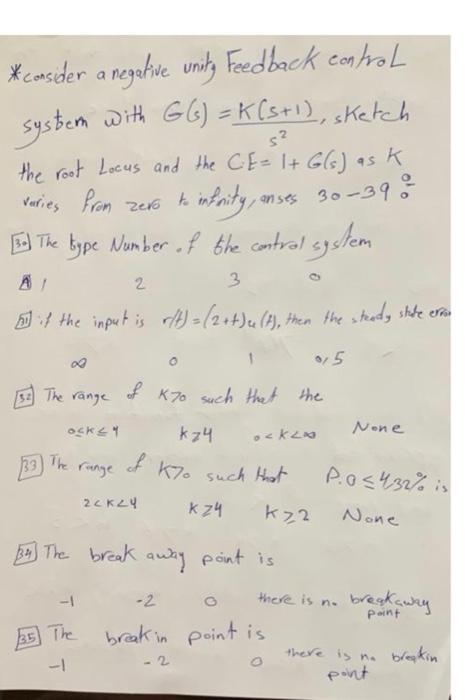 *consider a negative unity Feedback control
system with G(s) = K(s+1)/s², sketch
the root Locus and the C.E = 1+ G(s) as K
varies from zero to infinity, anses 30-39 :
30 The type Number of the control system
A 1 2 3 0
31 if the input is r(t) = (2+t)u(t), then the steady state error
∞ 0 1 0,5
32 The range of K>0 such that the
0≤K≤4 K≥4 0<K<∞ None
33 The range of K>0 such that P.O ≤ 4.32% is
2<K<4 K≥4 K≥2 None
34 The break away point is
-1 -2 0 there is no breakaway
point
35 The break in point is
-1 -2 0 there is no breakin
point